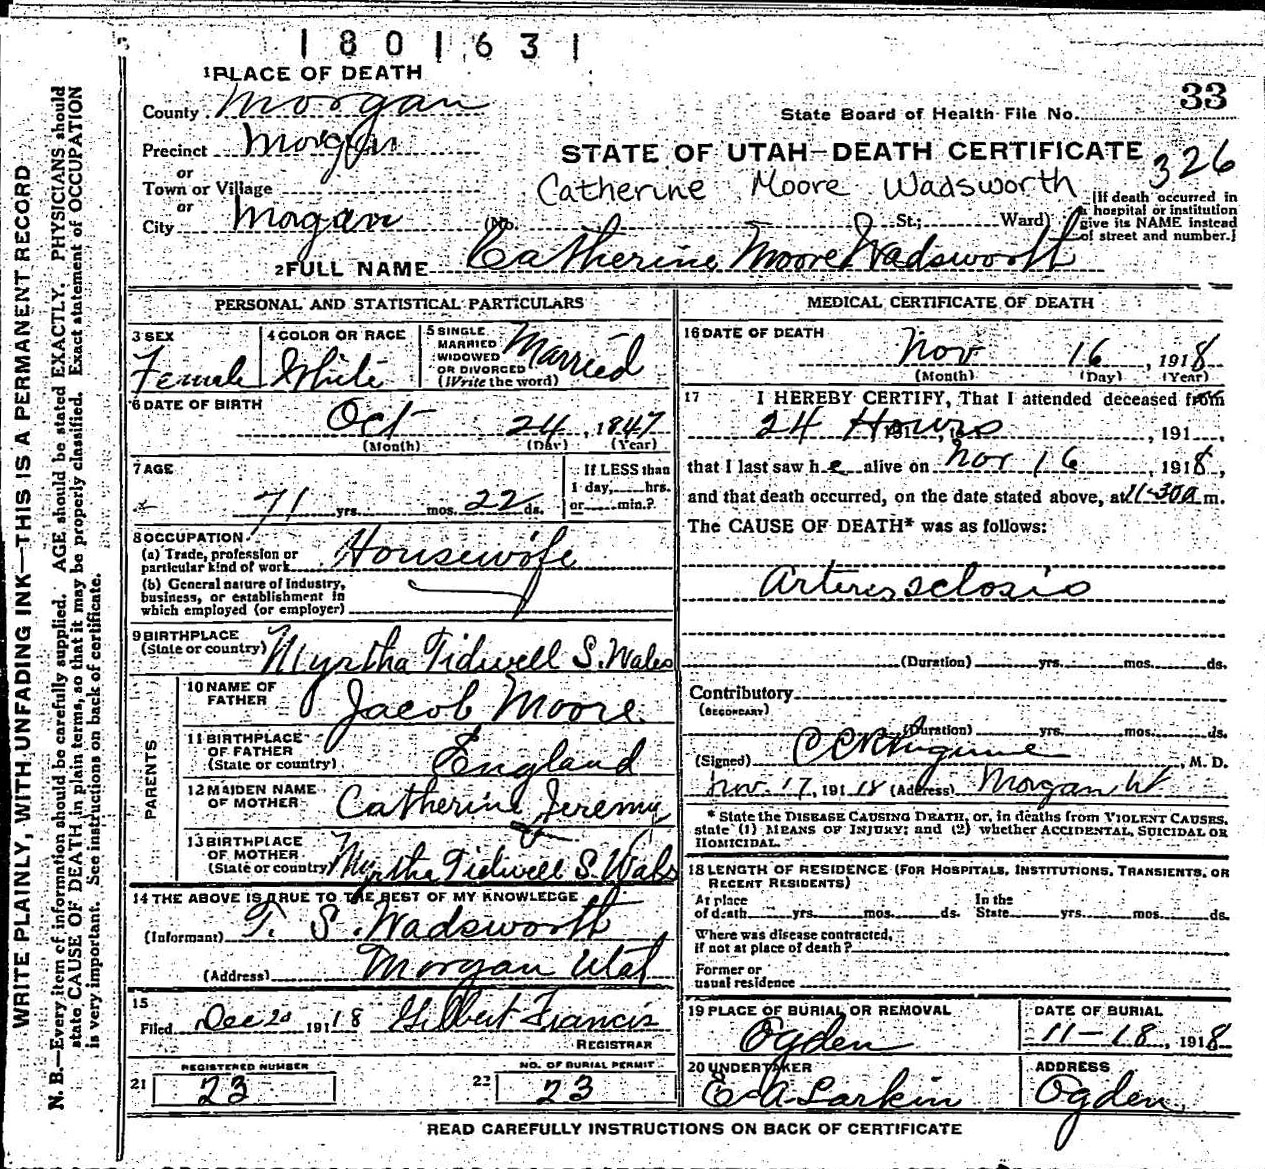 1801631
1 PLACE OF DEATH
County Morgan
33
State Board of Health File No.
Precinct Morgan
STATE OF UTAH—DEATH CERTIFICATE
326
or
Town or Village
Catherine Moore Wadsworth
or
City Morgan (No. St.; Ward)
[If death occurred in
a hospital or institution
give its NAME instead
of street and number.]
2 FULL NAME Catherine Moore Wadsworth
PERSONAL AND STATISTICAL PARTICULARS
3 SEX
Female
4 COLOR OR RACE
White
5 SINGLE
MARRIED
WIDOWED
OR DIVORCED
(Write the word)
Married
6 DATE OF BIRTH
Oct 24, 1847
(Month) (Day) (Year)
7 AGE
71 yrs. mos. 22 ds.
If LESS than
1 day, hrs.
or min.?
8 OCCUPATION
(a) Trade, profession or
particular kind of work Housewife
(b) General nature of industry,
business, or establishment in
which employed (or employer)
9 BIRTHPLACE
(State or country) Myrtha Tidwell S. Wales
PARENTS
10 NAME OF
FATHER Jacob Moore
11 BIRTHPLACE
OF FATHER
(State or country) England
12 MAIDEN NAME
OF MOTHER Catherine Jeremy
13 BIRTHPLACE
OF MOTHER
(State or country) Myrtha Tidwell S. Wales
14 THE ABOVE IS TRUE TO THE BEST OF MY KNOWLEDGE
(Informant) T. S. Wadsworth
(Address) Morgan Utah
15
Filed Dec 20 1918 Gilbert Francis
REGISTRAR
21 REGISTERED NUMBER
23
22 NO. OF BURIAL PERMIT
23
MEDICAL CERTIFICATE OF DEATH
16 DATE OF DEATH
Nov 16, 1918
(Month) (Day) (Year)
17 I HEREBY CERTIFY, That I attended deceased from
24 Hours, 191
that I last saw he alive on Nov 16, 1918,
and that death occurred, on the date stated above, at 11-30 a m.
The CAUSE OF DEATH* was as follows:
Arteriosclosis
(Duration) yrs. mos. ds.
Contributory
(SECONDARY)
(Duration) yrs. mos. ds.
(Signed) M. D.
Nov. 17, 1918 (Address) Morgan Ut
* State the DISEASE CAUSING DEATH, or, in deaths from VIOLENT CAUSES,
state (1) MEANS OF INJURY; and (2) whether ACCIDENTAL, SUICIDAL OR
HOMICIDAL.
18 LENGTH OF RESIDENCE (FOR HOSPITALS, INSTITUTIONS, TRANSIENTS, OR
RECENT RESIDENTS)
At place
of death yrs. mos. ds.
In the
State yrs. mos. ds.
Where was disease contracted,
if not at place of death?
Former or
usual residence
19 PLACE OF BURIAL OR REMOVAL
Ogden
DATE OF BURIAL
11-18, 1918
20 UNDERTAKER
E A Larkin
ADDRESS
Ogden
READ CAREFULLY INSTRUCTIONS ON BACK OF CERTIFICATE
WRITE PLAINLY, WITH UNFADING INK—THIS IS A PERMANENT RECORD
N. B.—Every item of information should be carefully supplied. AGE should be stated EXACTLY. PHYSICIANS should
state CAUSE OF DEATH in plain terms, so that it may be properly classified. Exact statement of OCCUPATION
is very important. See instructions on back of certificate.